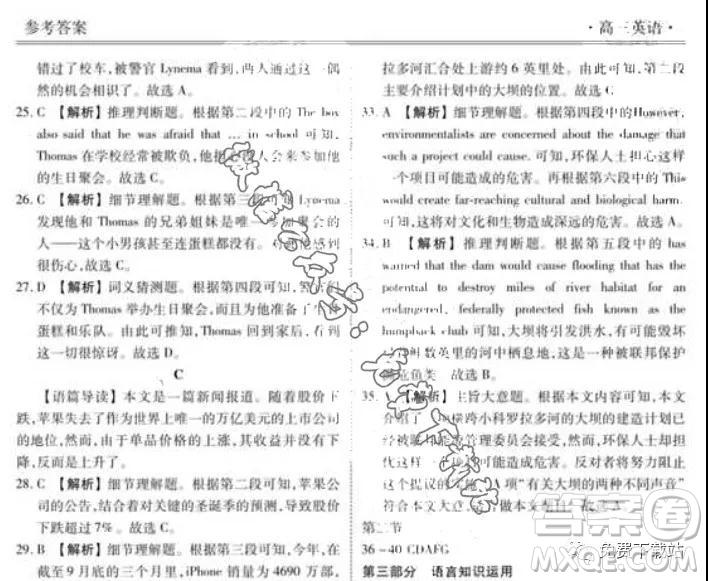 参考答案
·高三英语·
错过了校车,被警官 Lynema 看到,两人通过这一偶
然的机会相识了。故选 A。
25. C 【解析】推理判断题。根据第二段中的 The boy
also said that he was afraid that … in school 可知,
Thomas 在学校经常被欺负,他担心没人会来参加他
的生日聚会。故选 C。
26. C 【解析】细节理解题。根据第三段可知 Lynema
发现他和 Thomas 的兄弟姐妹是唯一参加聚会的
人——这个小男孩甚至连蛋糕都没有。
很伤心。故选 C。
27. D 【解析】词义猜测题。根据第四段可知,警
不仅为 Thomas 举办生日聚会,而且为他准备了
蛋糕和乐队。由此可推知,Thomas 回家后,看到
这一切很惊讶。故选 D。
C
【语篇导读】本文是一篇新闻报道。随着股价下
跌,苹果失去了作为世界上唯一的万亿美元的上市公司
的地位,然而,由于单品价格的上涨,其营收并没有下滑,
反而是上升了。
28. C 【解析】细节理解题。根据第二段可知,苹果公
司的公告,结合着对关键的圣诞季的预测,导致股价
下跌超过 7%。故选 C。
29. B 【解析】细节理解题。根据第三段可知,今年,在
截至 9 月底的三个月里,iPhone 销量为 4690 万部,
拉多河汇合处上游约 6 英里处。由此可知,第二段
主要介绍计划中的大坝的位置。故选 C。
33. A 【解析】细节理解题。根据第四段中的 However,
environmentalists are concerned about the damage that
such a project could cause. 可知,环保人士担心这样
一个项目可能造成的危害。再根据第六段中的 This
would create far-reaching cultural and biological harm.
可知,这将对文化和生物造成深远的危害。故选 A。
34. B 【解析】推理判断题。根据第五段中的 has
warned that the dam would cause flooding that has the
potential to destroy miles of river habitat for an
endangered, federally protected fish known as the
humpback chub 可知,大坝将引发洪水,有可能毁
数英里的河中栖息地,这一 被联邦保护
鱼类。故选 B。
35. 【解析】主旨大意题。根据本文内容可知,本文
介绍了一项横跨小科罗拉多河的大坝的建造计划已
经被联 管理委员会接受,然而,环保人士却
此计划可能造成的危害。反对者将努力阻止
这个提议的实施。 项“有关大坝的两种不同声音”
符合本文大意, 做本文
第二节
36-40 CDAFG
第三部分 语言知识运用
免费下载站
答案圈